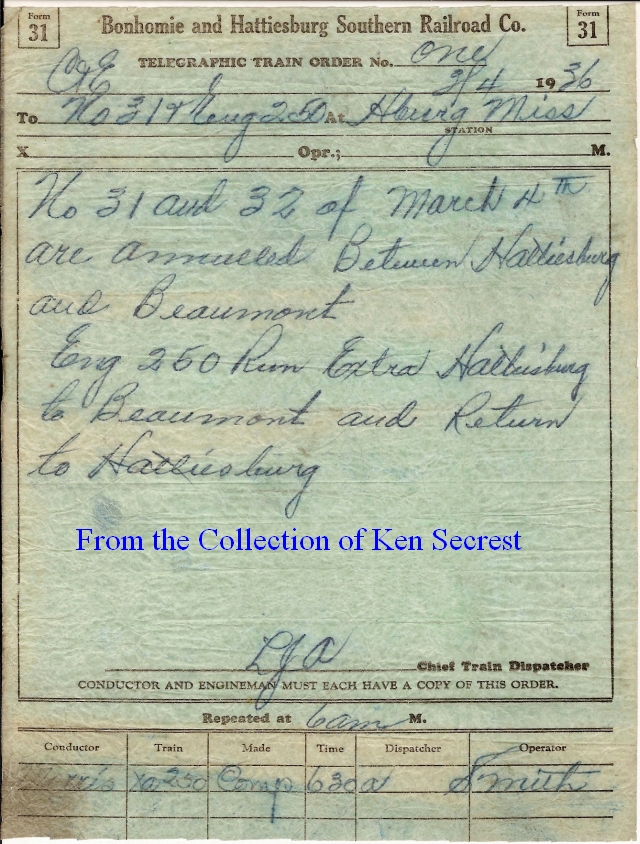 Form 31 Bonhomie and Hattiesburg Southern Railroad Co. Form 31
TELEGRAPHIC TRAIN ORDER No. One
C&E 3/4 1936
To No 31 & Eng 250 At Hburg Miss
STATION
X Opr.; M.
No 31 and 32 of March 4th
are annulled Between Hattiesburg
and Beaumont
Eng 250 Run Extra Hattiesburg
to Beaumont and Return
to Hattiesburg
From the Collection of Ken Secrest
LJA Chief Train Dispatcher
CONDUCTOR AND ENGINEMAN MUST EACH HAVE A COPY OF THIS ORDER.
Repeated at 6am M.
Conductor Train Made Time Dispatcher Operator
250 Comp 630a Smith